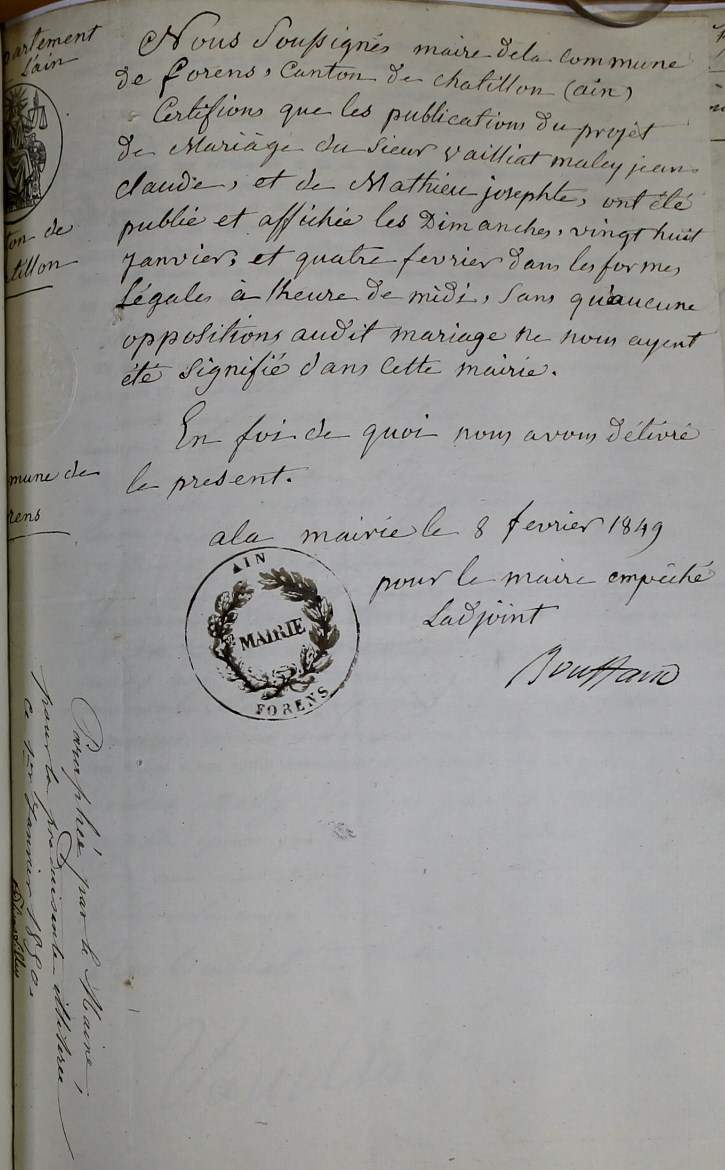 partement
L'ain
ton de
atillon
mune de
rens
Nous Soussignés maire dela commune
de forens, Canton de chatillon (ain)
Certifions que les publications du projet
de Mariàge du Sieur Vailliat maley jean
claude, et de Mathieu josephte, ont été
publié et affichée les Dimanches, vingt huit
Janvier, et quatre fevrier dans les formes
Légales à lheure de midi, Sans qu'aucune
oppositions audit mariage ne nous ayent
été Signifié dans cette mairie.
En foi de quoi nous avons délivré
le present.
ala mairie le 8 fevrier 1849
pour le maire empêché
Ladjoint
Bouffard
AIN
MAIRIE
FORENS
Paraphée par le Maire,
pour la produisante illiterée
ce 1er Janvier 1850.